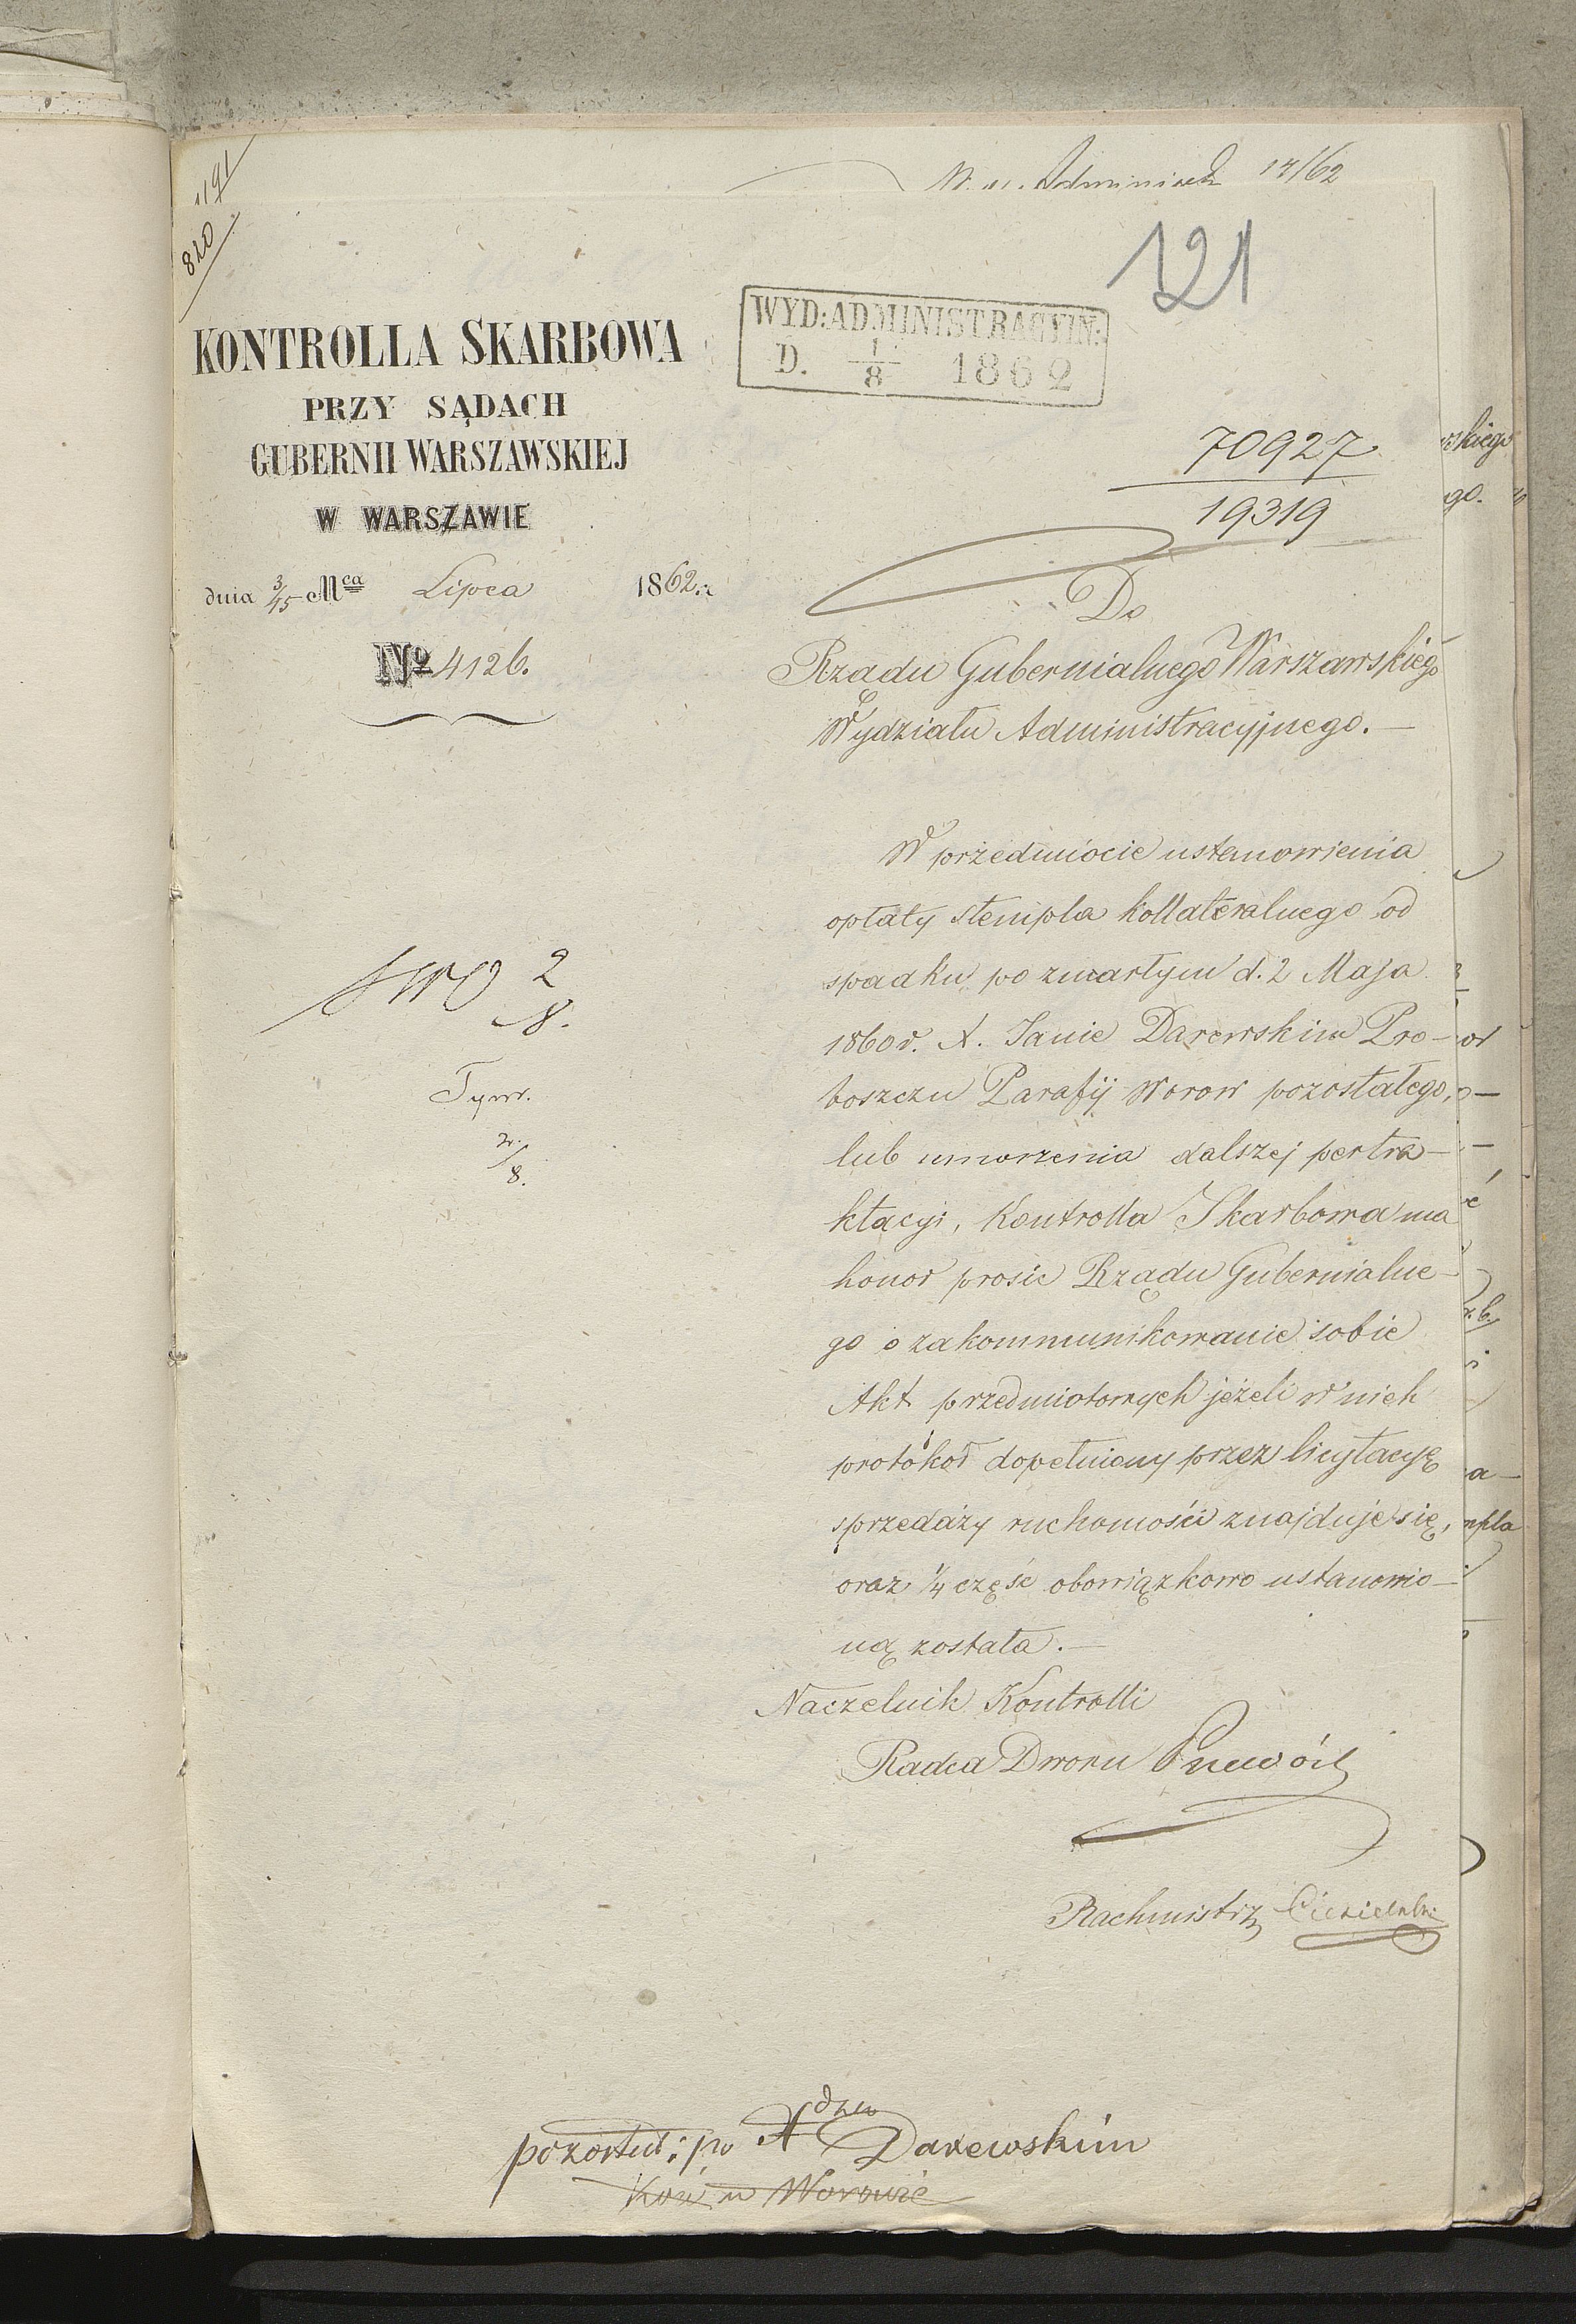 1191
820
17/62
121
WYD: ADMINISTRACYIN:
D. 1/8 1862
KONTROLLA SKARBOWA
PRZY SĄDACH
GUBERNII WARSZAWSKIEJ
W WARSZAWIE
dnia 3/15 Mca Lipca 1862 r.
No 4126.
70927
19319
Do
Rządu Gubernialnego Warszawskiego
Wydziału Administracyjnego. —
W przedmiocie ustanowienia
opłaty stempla kollateralnego od
spadku po zmarłym d. 2 Maja
1860 r. X. Janie Darewskim Pro-
boszczu Parafij Worow pozostałego,
lub umorzenia dalszej pertra-
ktacyi, Kontrolla Skarbowa ma
honor prosić Rządu Gubernialne-
go o zakommunikowanie sobie
Akt przedmiotowych jeżeli w nich
protokół dopełniony przez licytacyę
sprzedaży ruchomości znajduje się,
oraz 1/4 część obowiązkowo ustanowio-
ną została. —
Naczelnik Kontrolli
Radca Dworu
Rachmistrz
2
8.
Tym.
8.
po X Darewskim
w Worowie